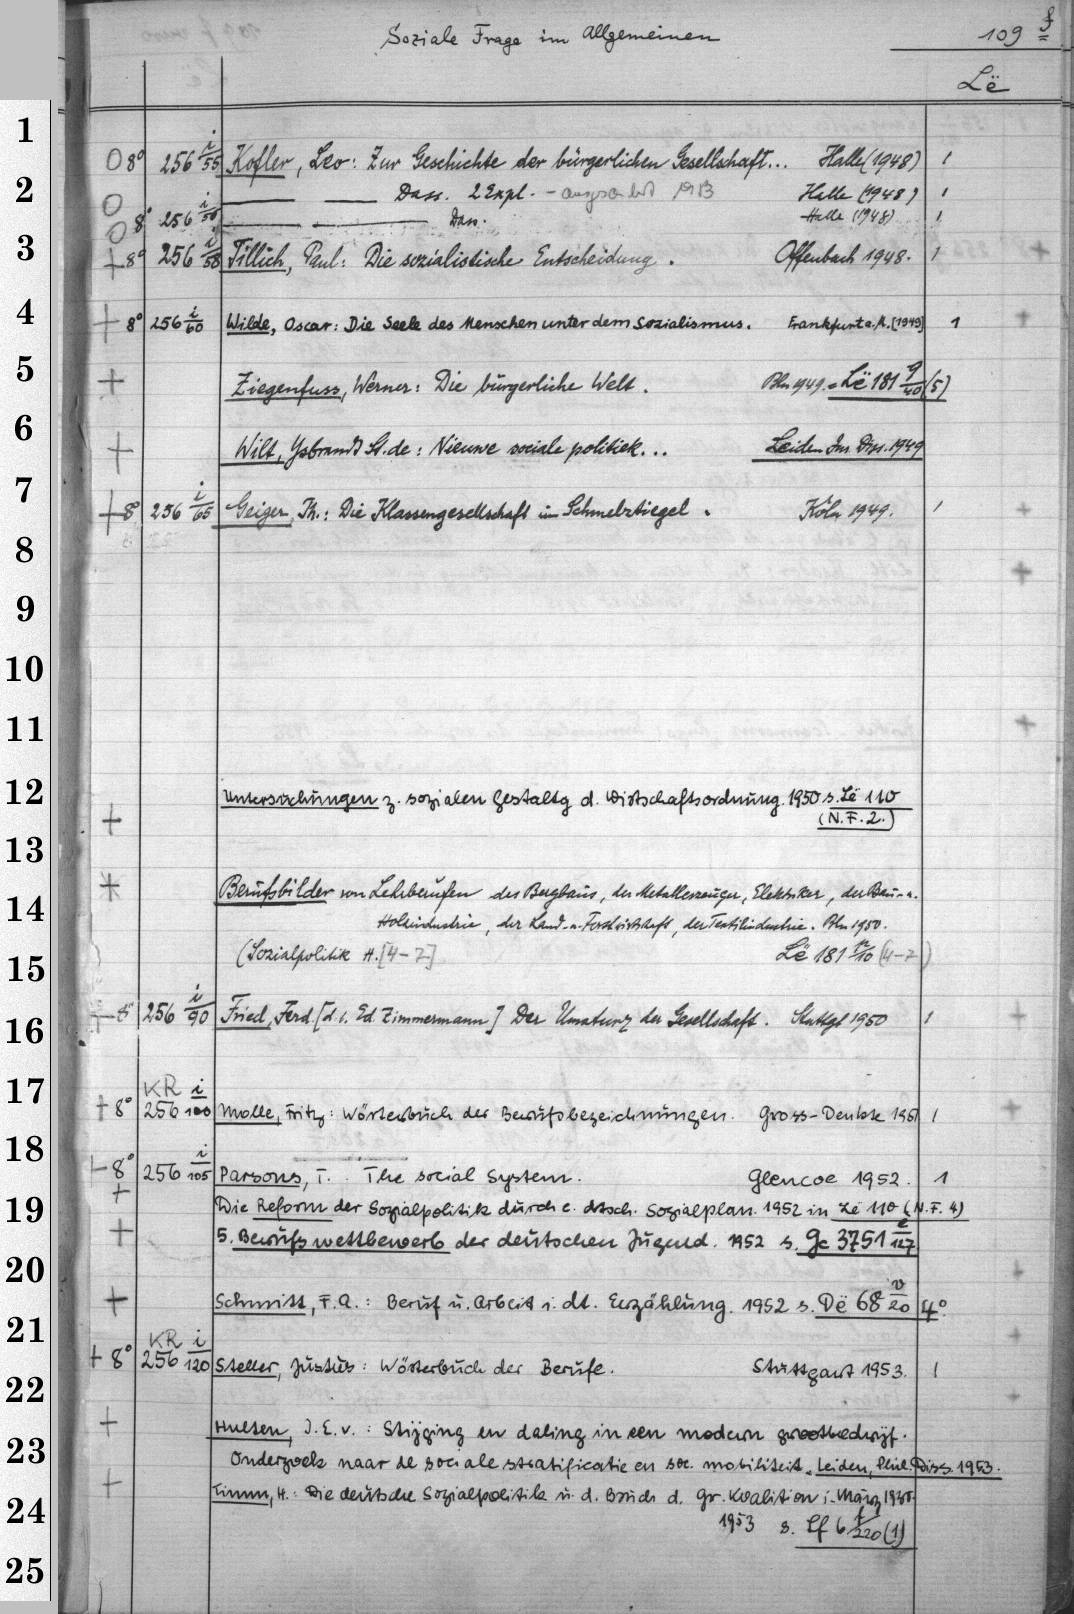 Soziale Frage im Allgemeinen 109 f
Lë
1
O 8° 256 i/55 Kofler, Leo: Zur Geschichte der bürgerlichen Gesellschaft... Halle (1948) 1
2
O Dass. 2 Expl. Halle (1948) 1
O 8° 256 i/56 Dass. Halle (1948) 1
3
+ 8° 256 i/58 Tillich, Paul: Die sozialistische Entscheidung. Offenbach 1948. 1
4
+ 8° 256 i/60 Wilde, Oscar: Die Seele des Menschen unter dem Sozialismus. Frankfurt a. M. [1949] 1
5
+ Ziegenfuss, Werner: Die bürgerliche Welt. Bln 1949. = Lë 181 g/40 (5)
6
+ Wilt, Ysbrandt St. de: Nieuwe sociale politiek... Leiden Jur. Diss. 1949
7
+ 8° 256 i/65 Geiger, Th.: Die Klassengesellschaft im Schmelztiegel. Köln 1949. 1
8
9
10
11
12
+ Untersuchungen z. sozialen Gestaltg d. Wirtschaftsordnung. 1950 s. Lë 110
(N.F. 2.)
13
+ Berufsbilder von Lehrberufen des Bergbaus, der Metallerzeuger, Elektriker, der Bau- u.
14
Holzindustrie, der Land- u. Forstwirtschaft, der Textilindustrie. Bln 1950.
(Sozialpolitik H. [4-7] Lë 181 /10 (4-7)
15
+ 8° 256 i/90 Fried, Ferd. [d. i. Ed. Zimmermann] Der Umsturz der Gesellschaft. Stuttgt 1950 1
16
17
KR
+ 8° 256 i/100 Molle, Fritz: Wörterbuch der Berufsbezeichnungen. Gross-Denkte 1951 1
18
+ 8° 256 i/105 Parsons, T. The social System. Glencoe 1952. 1
19
+ Die Reform der Sozialpolitik durch e. dtsch. Sozialplan. 1952 in Lë 110 (N.F. 4)
+ 5. Berufswettbewerb der deutschen Jugend. 1952 s. Gc 3751 e/127
20
+ Schmitt, F.A.: Beruf u. Arbeit i. dt. Erzählung. 1952 s. Dë 68 v/20 4°
21
KR
+ 8° 256 i/120 Steller, Justus: Wörterbuch der Berufe. Stuttgart 1953. 1
22
+ Hulten, J.E.v.: Stijging en daling in een modern grootbedrijf.
23
Onderzoek naar de sociale stratificatie en soc. mobiliteit. Leiden, Phil. Diss. 1953.
+ Timm, H.: Die deutsche Sozialpolitik u. d. Bruch d. gr. Koalition i. März 1930.
24
1953 s. Lf 6 f/220 (1)
25